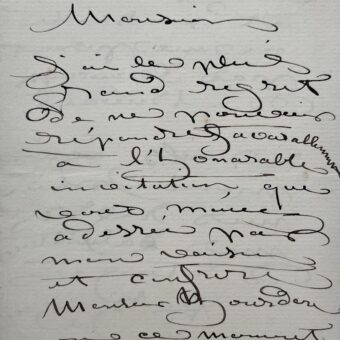 Monsieur
J'ai le plus
grand regret
de ne pouvoir
répondre favorablement
à l'honorable
invitation que
vous m'avez
adressée par
mon voisin
et confrère
Monsieur Bourdon
ce moment